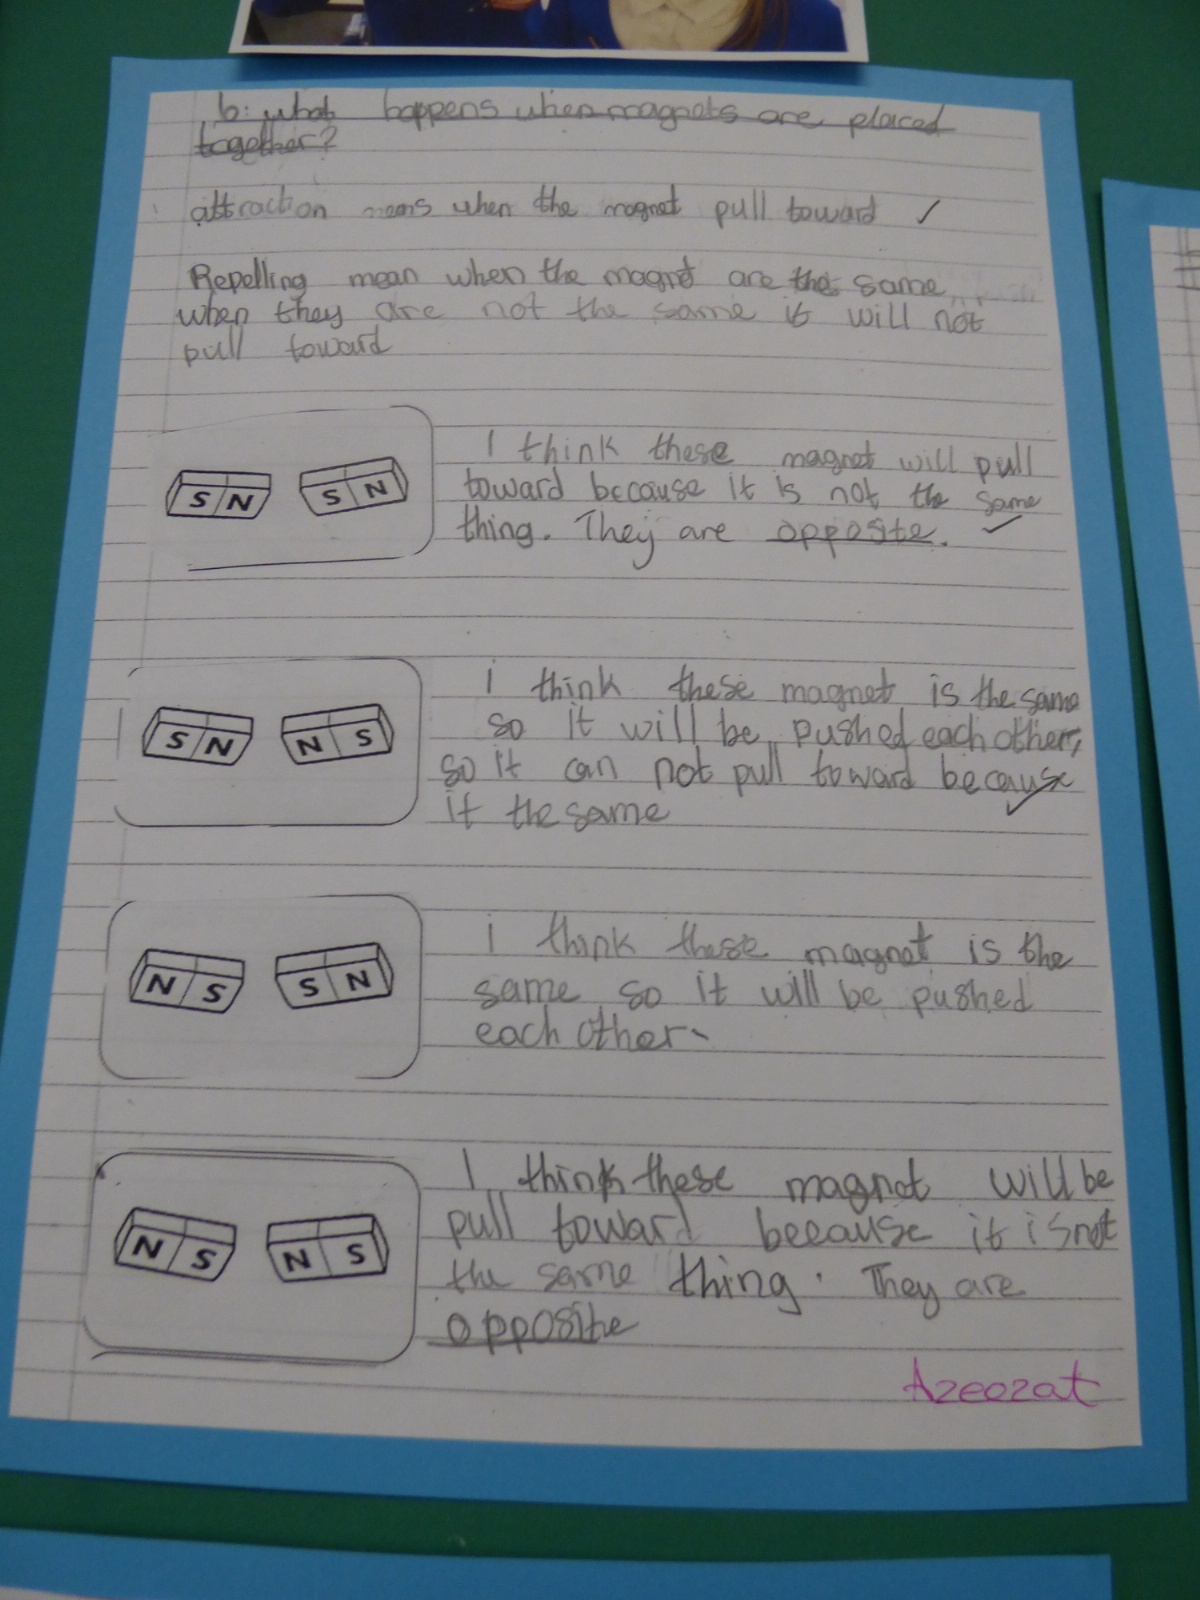 6: what happens when magnets are placed
together?
attraction means when the magnet pull toward ✓
Repelling mean when the magnet are the same
when they are not the same it will not
pull toward
I think these magnet will pull
toward because it is not the same
thing. They are opposite. ✓
S N S N
i think these magnet is the same
so it will be pushed each other,
so it can not pull toward because
it the same ✓
S N N S
i think these magnet is the
same so it will be pushed
each other.
N S S N
I think these magnet will be
pull toward beeause it is not
the same thing. They are
opposite
N S N S
Azeezat